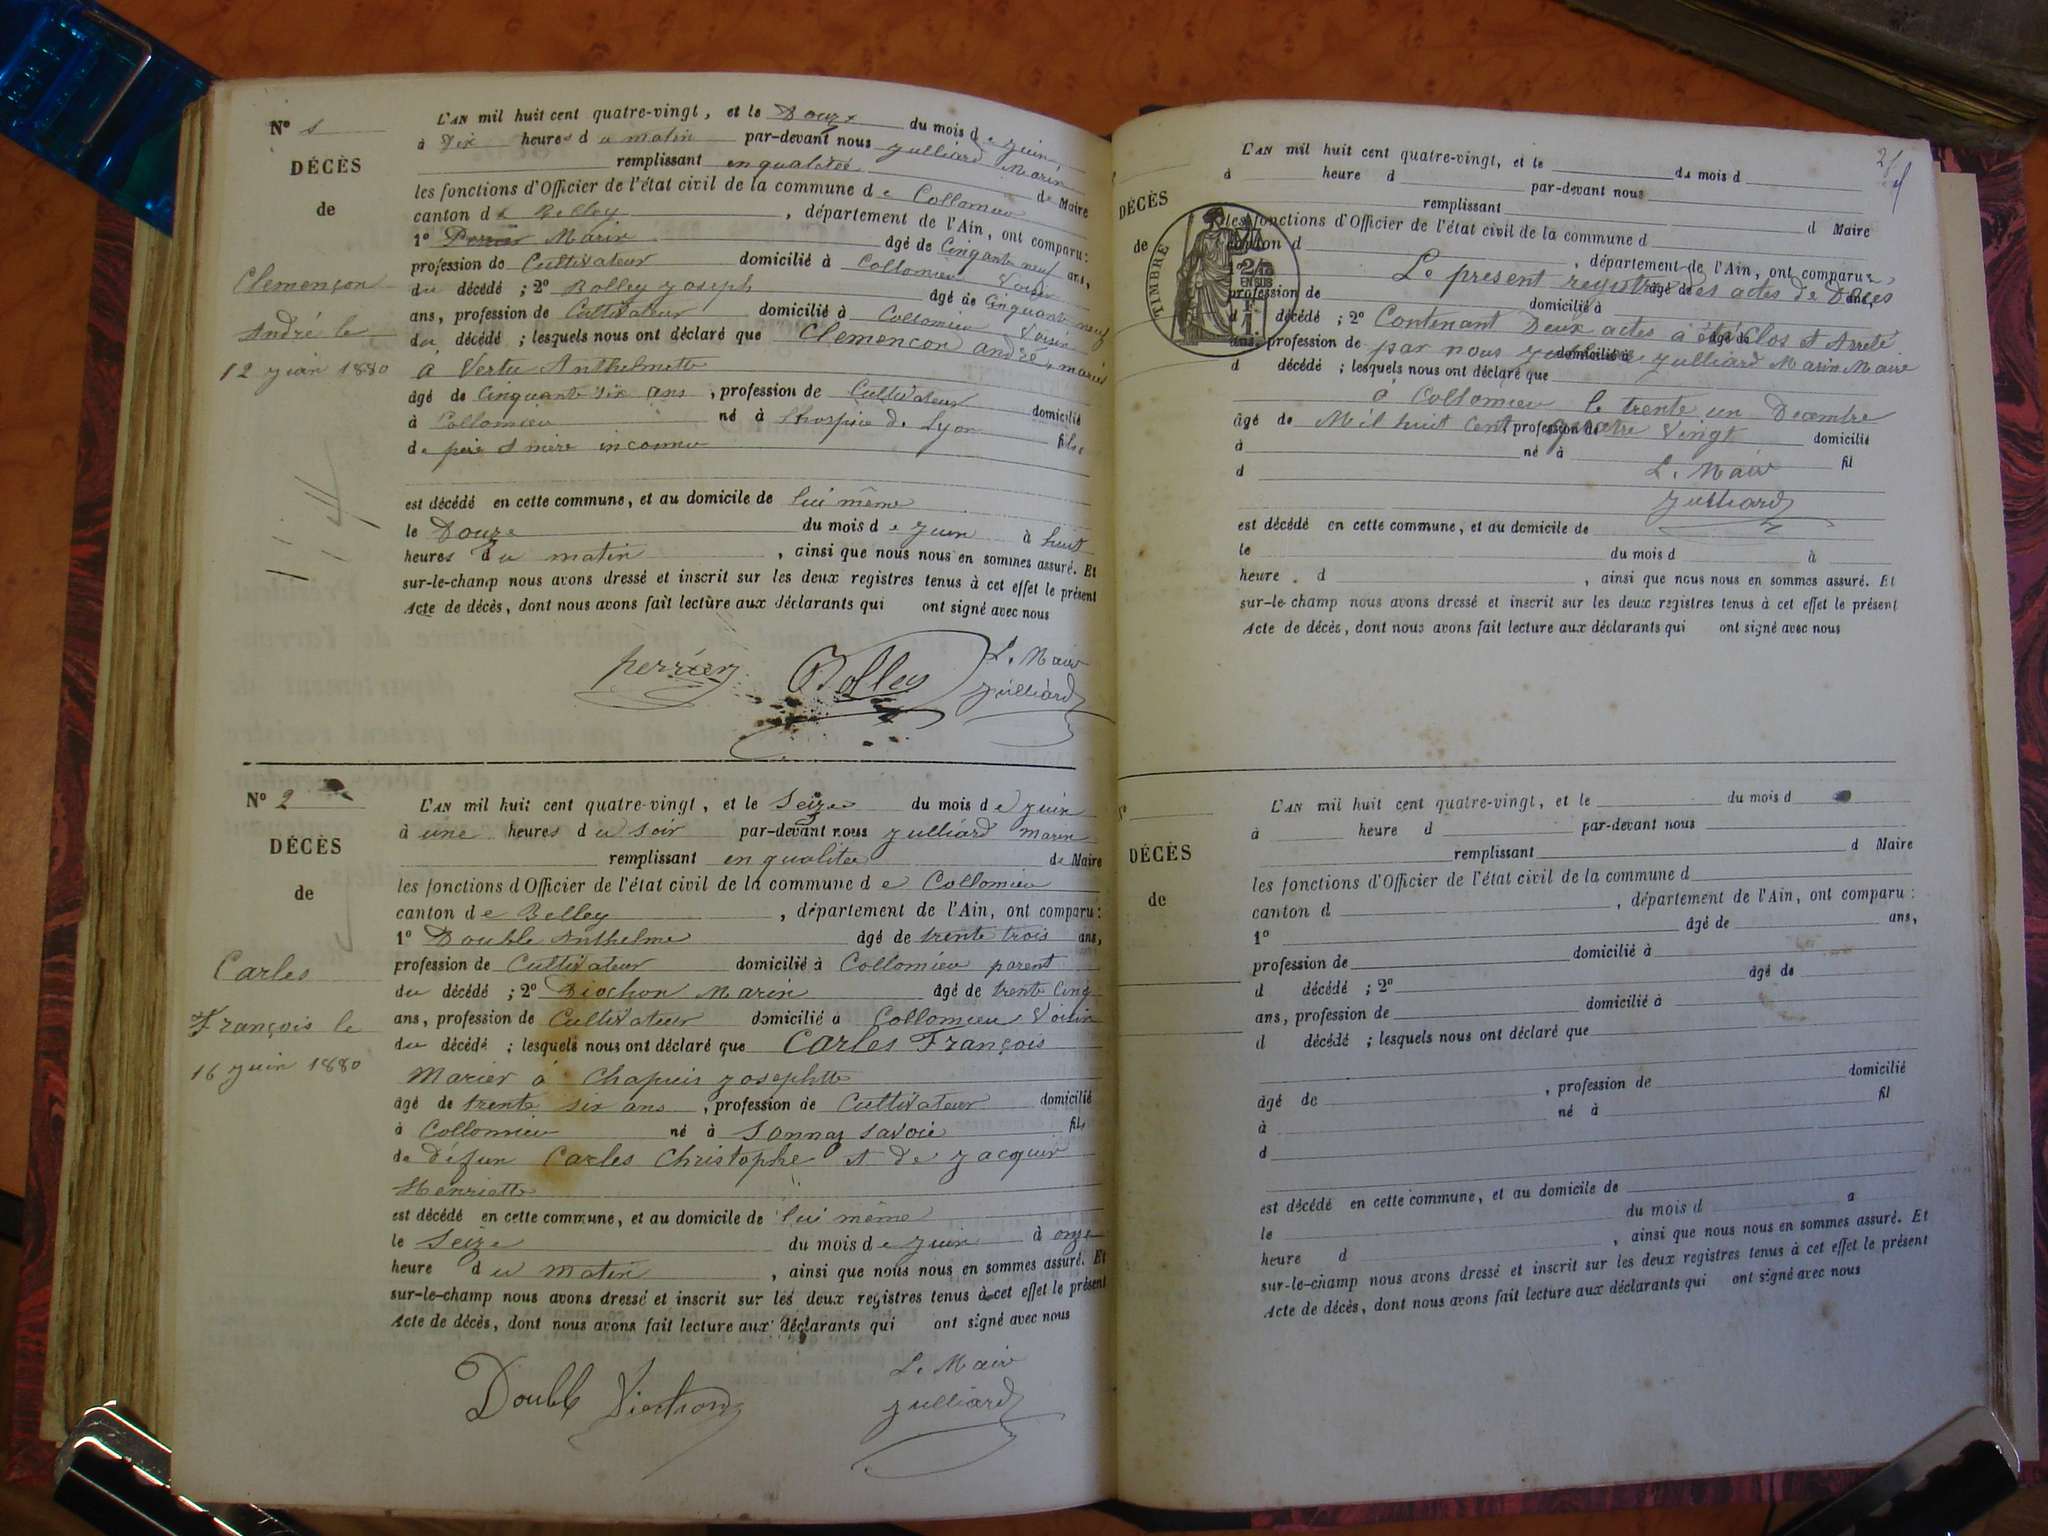 N° 1
DÉCÈS
de
Clemençon
André le
12 juin 1880
L'AN mil huit cent quatre-vingt, et le Douze du mois de juin
à Dix heures du matin par-devant nous julliard Marin
remplissant en qualitée de Maire
les fonctions d'Officier de l'état civil de la commune de Collomieu
canton de Belley, département de l'Ain, ont comparu:
1° Marin âgé de Cinquante neuf ans,
profession de Cultivateur domicilié à Collomieu Voisin
du décédé ; 2° Bolley joseph âgé de Cinquante neuf
ans, profession de Cultivateur domicilié à Collomieu Voisin
du décédé ; lesquels nous ont déclaré que Clemençon andré, marié
à Vertu Anthelmette
âgé de Cinquante six ans, profession de Cultivateur domicilié
à Collomieu né à lhospice de Lyon fils
de père et mère inconnu
est décédé en cette commune, et au domicile de lui même
le Douze du mois de juin à huit
heures du matin, ainsi que nous nous en sommes assuré. Et
sur-le-champ nous avons dressé et inscrit sur les deux registres tenus à cet effet le présent
Acte de décès, dont nous avons fait lecture aux déclarants qui ont signé avec nous
perrier Bolley L. Maire
julliard
N° 2
DÉCÈS
de
Carles
François le
16 juin 1880
L'AN mil huit cent quatre-vingt, et le Seize du mois de juin
à une heures du soir par-devant nous julliard marin
remplissant en qualitée de Maire
les fonctions d'Officier de l'état civil de la commune de Collomieu
canton de Belley, département de l'Ain, ont comparu:
1° Double Anthelme âgé de trente trois ans,
profession de Cultivateur domicilié à Collomieu parent
du décédé ; 2° Diochon Marin âgé de trente cinq
ans, profession de Cultivateur domicilié à Collomieu Voisin
du décédé ; lesquels nous ont déclaré que Carles François
Marier à Chapuis josephtte
âgé de trente six ans, profession de Cultivateur domicilié
à Collomieu né à Sonnaz Savoie fils
de défun Carles Christophe et de jacquin
Henriette
est décédé en cette commune, et au domicile de lui même
le Seize du mois de juin à onze
heure du matin, ainsi que nous nous en sommes assuré. Et
sur-le-champ nous avons dressé et inscrit sur les deux registres tenus à cet effet le présent
Acte de décès, dont nous avons fait lecture aux déclarants qui ont signé avec nous
Double L. Maire
julliard
DÉCÈS
de
TIMBRE
L'AN mil huit cent quatre-vingt, et le du mois d
à heure d par-devant nous
remplissant d Maire
les fonctions d'Officier de l'état civil de la commune d
canton d, département de l'Ain, ont comparu:
Le present registre des actes de Décès
profession de domicilié à
d décédé ; 2° Contenant Deux actes à été Clos et Arrêté
ans, profession de par nous julliard Marin Maire
d décédé ; lesquels nous ont déclaré que
à Collomieu le trente un Decembre
âgé de Mil huit Cent quatre Vingt domicilié
à né à
d L. Maire fil
julliard
est décédé en cette commune, et au domicile de
le du mois d à
heure d, ainsi que nous nous en sommes assuré. Et
sur-le-champ nous avons dressé et inscrit sur les deux registres tenus à cet effet le présent
Acte de décès, dont nous avons fait lecture aux déclarants qui ont signé avec nous
DÉCÈS
de
L'AN mil huit cent quatre-vingt, et le du mois d
à heure d par-devant nous
remplissant d Maire
les fonctions d'Officier de l'état civil de la commune d
canton d, département de l'Ain, ont comparu:
1° âgé de ans,
profession de domicilié à
d décédé ; 2° âgé de
ans, profession de domicilié à
d décédé ; lesquels nous ont déclaré que
âgé de, profession de domicilié
à né à fil
d
est décédé en cette commune, et au domicile de
le du mois d a
heure d, ainsi que nous nous en sommes assuré. Et
sur-le-champ nous avons dressé et inscrit sur les deux registres tenus à cet effet le présent
Acte de décès, dont nous avons fait lecture aux déclarants qui ont signé avec nous